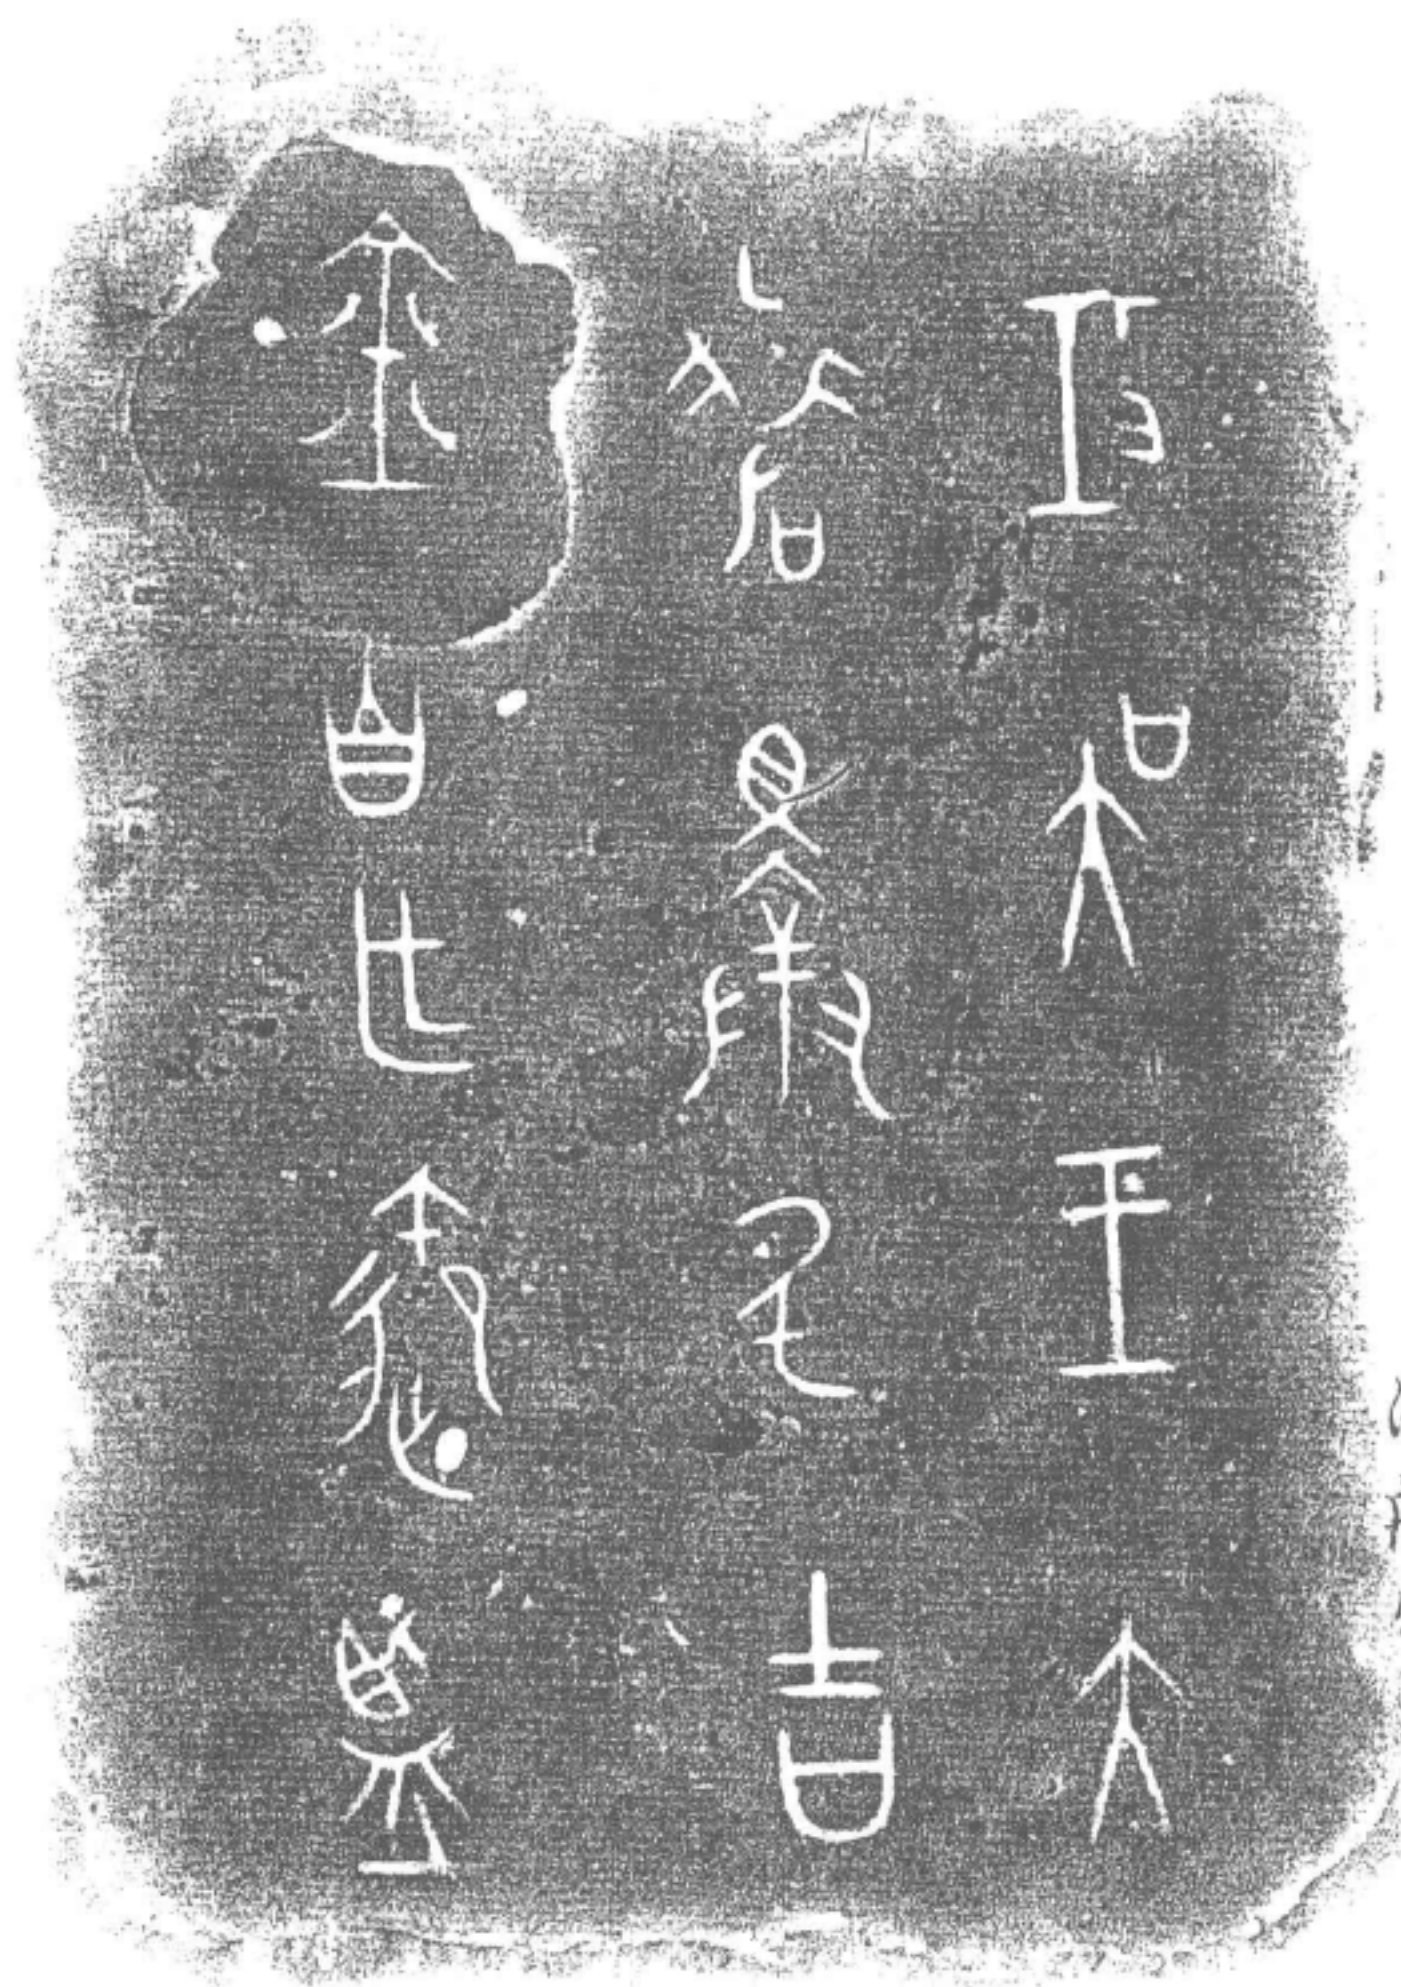 攻吳王大
差擇厥吉
金自乍御監